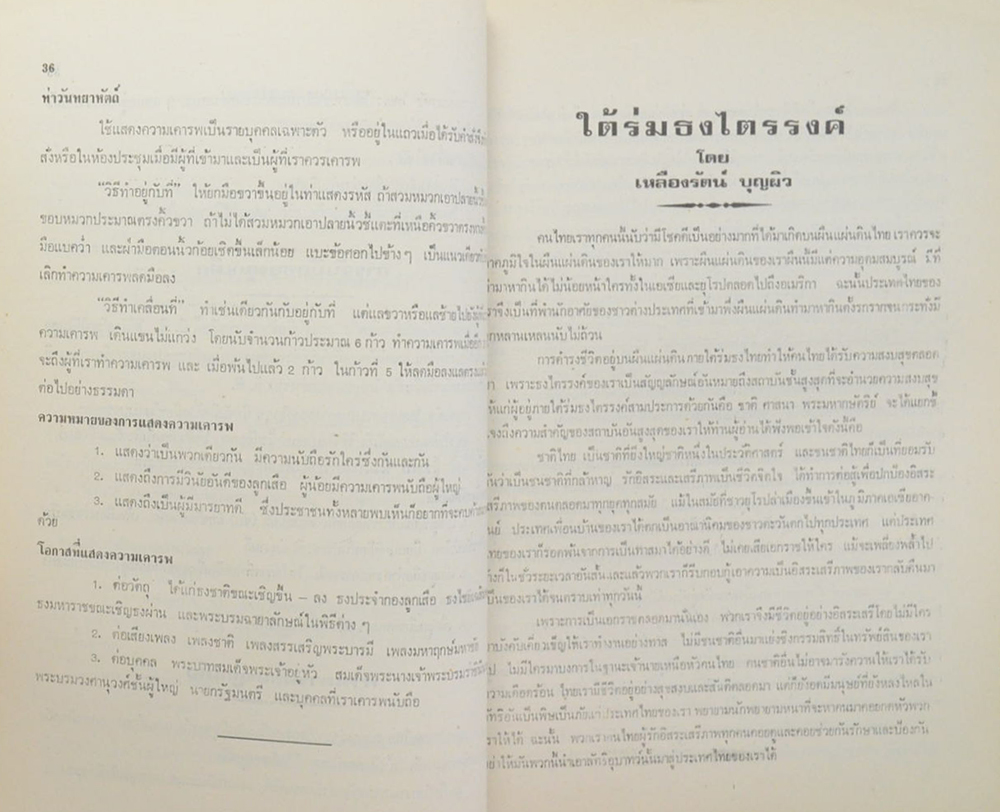 36
ท่าวันทยาหัตถ์
ใช้แสดงความเคารพเป็นรายบุคคลเฉพาะตัว หรืออยู่ในแถวเมื่อได้รับคำ
สั่งหรือในห้องประชุมเมื่อมีผู้ที่เข้ามาและเป็นผู้ที่เราควรเคารพ
"วิธีทำอยู่กับที่" ให้ยกมือขวาขึ้นอยู่ในท่าแสดงรหัส ถ้าสวมหมวกเอาปลายนิ้วชี้
ขอบหมวกประมาณตรงคิ้วขวา ถ้าไม่ได้สวมหมวกเอาปลายนิ้วชี้แตะที่เหนือคิ้วขวา
มือแบคว่ำ และฝ่ามือตอนนิ้วก้อยเชิดขึ้นเล็กน้อย แบะข้อศอกไปข้างๆ เป็นแนวเดียว
เลิกทำความเคารพลดมือลง
"วิธีทำเคลื่อนที่" ทำเช่นเดียวกันกับอยู่กับที่ แต่แลขวาหรือแลซ้ายไปยัง
ความเคารพ เดินแขนไม่แกว่ง โดยนับจำนวนก้าวประมาณ 6 ก้าว ทำความเคารพเมื่อ
จะถึงผู้ที่เราทำความเคารพ และ เมื่อพ้นไปแล้ว 2 ก้าว ในก้าวที่ 5 ให้ลดมือลง
ต่อไปอย่างธรรมดา
ความหมายของการแสดงความเคารพ
1. แสดงว่าเป็นพวกเดียวกัน มีความนับถือรักใคร่ซึ่งกันและกัน
2. แสดงถึงการมีวินัยอันดีของลูกเสือ ผู้น้อยมีความเคารพนับถือผู้ใหญ่
3. แสดงถึงเป็นผู้มีมารยาทดี ซึ่งประชาชนทั้งหลายพบเห็นก็อยากที่จะคบ
ด้วย
โอกาสที่แสดงความเคารพ
1. ต่อวัตถุ ได้แก่ธงชาติขณะเชิญขึ้น – ลง ธงประจำกองลูกเสือ
ธงมหาราชขณะเชิญธงผ่าน และพระบรมฉายาลักษณ์ในพิธีต่าง ๆ
2. ต่อเสียงเพลง เพลงชาติ เพลงสรรเสริญพระบารมี เพลงมหาฤกษ์
3. ต่อบุคคล พระบาทสมเด็จพระเจ้าอยู่หัว สมเด็จพระนางเจ้าพระบรมราชินี
พระบรมวงศานุวงศ์ชั้นผู้ใหญ่ นายกรัฐมนตรี และบุคคลที่เราเคารพนับถือ
ใต้ร่มธงไตรรงค์
โดย
เหลืองรัตน์ บุญผิว
คนไทยเราทุกคนนั้นนับว่ามีโชคดีเป็นอย่างมากที่ได้มาเกิดบนผืนแผ่นดินไทย เราควรจะ
ภาคภูมิใจในผืนแผ่นดินของเราให้มาก เพราะผืนแผ่นดินของเราผืนนี้มีแต่ความอุดมสมบูรณ์ มีที่
ทำมาหากินได้ไม่น้อยหน้าใครทั้งในเอเซียและยุโรปตลอดไปถึงอเมริกา ฉะนั้นประเทศไทยของ
เราจึงเป็นที่พำนักอาศัยของชาวต่างประเทศที่เข้ามาพึ่งผืนแผ่นดินทำมาหากินตั้งรกรากจนกระทั่งมี
ลูกหลานเหลนนับไม่ถ้วน
การดำรงชีวิตอยู่บนผืนแผ่นดินภายใต้ร่มธงไทยทำให้คนไทยได้รับความสงบสุขตลอด
มา เพราะธงไตรรงค์ของเราเป็นสัญญลักษณ์อันหมายถึงสถาบันชั้นสูงสุดที่จะอำนวยความสงบสุข
ให้แก่ผู้อยู่ภายใต้ร่มธงไตรรงค์สามประการด้วยกันคือ ชาติ ศาสนา พระมหากษัตริย์ จะได้แยกชี้
แจงถึงความสำคัญของสถาบันอันสูงสุดของเราให้ท่านผู้อ่านได้พึงพอเข้าใจดังนี้คือ
ชาติไทย เป็นชาติที่ยิ่งใหญ่ชาติหนึ่งในประวัติศาสตร์ และชนชาติไทยก็เป็นที่ยอมรับ
กันว่าเป็นชนชาติที่กล้าหาญ รักอิสระและเสรีภาพเป็นชีวิตจิตใจ ได้ทำการต่อสู้เพื่อปกป้องอิสระ
เสรีภาพของตนตลอดมาทุกยุคทุกสมัย แม้ในสมัยที่ชาวยุโรปล่าเมืองขึ้นเข้าในภูมิภาคเอเซียอาค-
เนย์ ประเทศเพื่อนบ้านของเราได้ตกเป็นอาณานิคมของชาวตะวันตกไปทุกประเทศ แต่ประเทศ
ไทยของเราก็รอดพ้นจากการเป็นทาสมาได้อย่างดี ไม่เคยเสียเอกราชให้ใคร แม้จะเพลี่ยงพล้ำไป
บ้างก็ในชั่วระยะเวลาอันสั้นและแล้วพวกเราก็รีบกอบกู้เอาความเป็นอิสระเสรีภาพของเรากลับคืนมา
เป็นของเราได้จนตราบเท่าทุกวันนี้
เพราะการเป็นเอกราชตลอดมานั่นเอง พวกเราจึงมีชีวิตอยู่อย่างอิสระเสรีโดยไม่มีใคร
มาบังคับเคี่ยวเข็ญให้เราทำงานอย่างทาส ไม่มีชนชาติอื่นมาแย่งชิงกรรมสิทธิ์ในทรัพย์สินของเรา
ไป ไม่มีใครมาบงการในฐานะเจ้านายเหนือหัวคนไทย คนชาติอื่นไม่อาจมารังควานให้เราได้รับ
ความเดือดร้อน ไทยเรามีชีวิตอยู่อย่างสุขสงบและสันติตลอดมา แต่ก็ยังอดมีมนุษย์ที่ยังหลงใหลใน
ลัทธิอันเป็นพิษเป็นภัยแก่ประเทศไทยของเรา พยายามนักพยายามหนาที่จะหาคนมาคอยกดหัวพวก
เราให้ได้ ฉะนั้น พวกเราคนไทยผู้รักอิสระเสรีภาพทุกคนคอยดูและคอยช่วยกันรักษาและป้องกัน
อย่าให้มันพวกนี้นำเอาลัทธิอุบาทว์นั้นมาสู่ประเทศไทยของเราได้